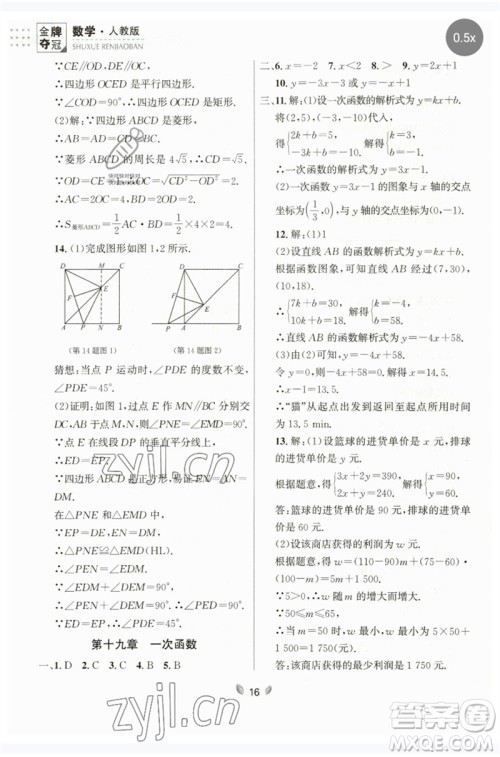 金牌夺冠 数学·人教版
SHUXUE RENJIAOBAN
0.5x
∵DE∥OC,CE∥OD,
∴四边形 OCED 是平行四边形.
∵∠COD=90°,∴四边形 OCED 是矩形.
(2)解:∵四边形 ABCD 是菱形,
∴AB=BC=CD=AD.
∵菱形 ABCD 的周长是 4√5,∴CD=√5.
∵OD=CE=1,∴OC=√(CD²−OD²)=2.
∴AC=2OC=4,BD=2OD=2.
∴S菱形ABCD=1/2AC·BD=1/2×4×2=4.
14.(1)完成图形如图 1,2 所示.
D M C
E
F
A P N B
D C
F E
A P B
(第 14 题图 1) (第 14 题图 2)
猜想:当点 P 运动时,∠PDE 的度数不变,
∠PDE=45°.
(2)证明:如图 1,过点 E 作 MN⊥AB 分别交
DC,AB 于点 M,N.
∵点 E 在线段 DP 的垂直平分线上,
∴ED=EP.
∵四边形 ABCD 是正方形,易证 EN=AN=
DM.
在△PNE 和△EMD 中,
∵EP=DE,EN=DM,
∴△PNE≌△EMD(HL).
∴∠PEN=∠EDM.
∵∠EDM+∠DEM=90°,
∴∠PEN+∠DEM=90°.
∴∠PED=90°.
又∵EP=ED,
∴∠PDE=45°.
第十九章 一次函数
一、1.D 2.C 3.C 4.B 5.B
二、6.m>−2 7.x>1 8.> 9.x=2
10.y=−3x−3 或 y=−2x+1
三、11.解:(1)设一次函数的解析式为 y=kx+b.
将(2,5),(−1,−4)代入,
得{2k+b=5 −k+b=−4 解得{k=3 b=−1
∴一次函数的解析式为 y=3x−1.
(2)一次函数 y=3x−1 的图象与 x 轴的交点
坐标为(1/3,0),与 y 轴的交点坐标为(0,−1).
12.解:(1)1
(2)设直线 AB 的函数解析式为 y=kx+b.
根据函数图象,可得直线 AB 经过(7,30),
(10,18).
∴{7k+b=30 10k+b=18 解得{k=−4 b=58.
∴直线 AB 的函数解析式为 y=−4x+58.
令 y=0,得 −4x+58=0.
解得 x=14.5.
14.5−1=13.5.
∴“猫”从起点出发到返回至起点所用的时间为
13.5 min.
13.解:(1)设篮球的进货单价为 x 元,排球的进
货单价为 y 元.
根据题意,得{3x+2y=390 2x+y=240 解得{x=90 y=60
答:篮球的进货单价为 90 元,排球的进货单价
为 60 元.
(2)设该商店获得的利润为 w 元.
根据题意,得 w=(110−90)m+(75−60)×
(100−m)=5m+1 500.
∵5>0,∴w 随 m 的增大而增大.
∵50≤m≤60,
∴当 m=50 时,w 取最小值,最小值为 5×50+
1 500=1 750.
答:该商店获得的最少利润为 1 750 元.
16
zyjl.cn
zyjl.cn
答案圈
MXQE.COM